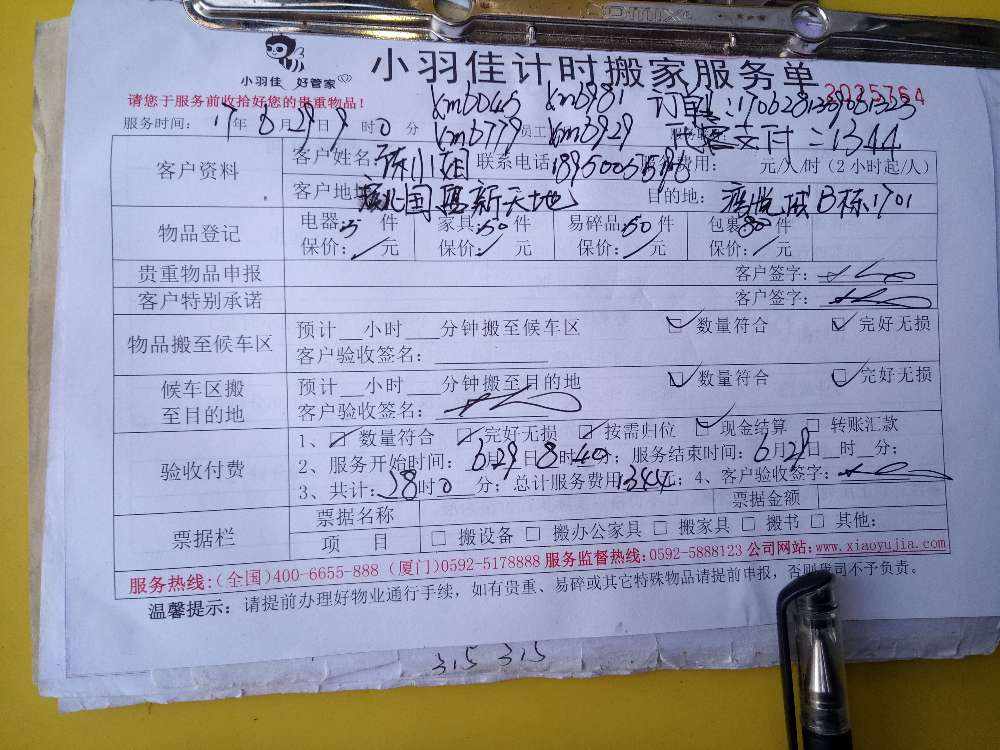 小羽佳 好管家
小羽佳计时搬家服务单
请您于服务前收拾好您的贵重物品！
2025764
xmb045 xmb981 订单：
服务时间：17年6月29日9时0分
xmb779 员工 xmb929 支付：1344
客户资料 客户姓名 陈小姐 联系电话 费用： 元/人/时（2小时起/人）
客户地址 国 新天地 目的地： B栋1701
物品登记 电器：5件 家具：50件 易碎品：50件 包裹：80件
保价：/元 保价：/元 保价：/元 保价：/元
贵重物品申报 客户签字：
客户特别承诺 客户签字：
物品搬至候车区 预计__小时___分钟搬至候车区 ☑数量符合 ☑完好无损
客户验收签名：
候车区搬至目的地 预计__小时___分钟搬至目的地 ☑数量符合 ☑完好无损
客户验收签名：
验收付费 1、☑数量符合 ☑完好无损 ☑按需归位 ☑现金结算 □转账汇款
2、服务开始时间：6月29日8时40分；服务结束时间：6月29日__时__分；
3、共计：38时0分；总计服务费用1344元；4、客户验收签字：
票据栏 票据名称 票据金额
项 目 □搬设备 □搬办公家具 □搬家具 □搬书 □其他：
服务热线:(全国)400-6655-888 (厦门)0592-5178888 服务监督热线:0592-5888123 公司网站:www.xiaoyujia.com
温馨提示：请提前办理好物业通行手续，如有贵重、易碎或其它特殊物品请提前申报，否则我司不予负责。
315 315